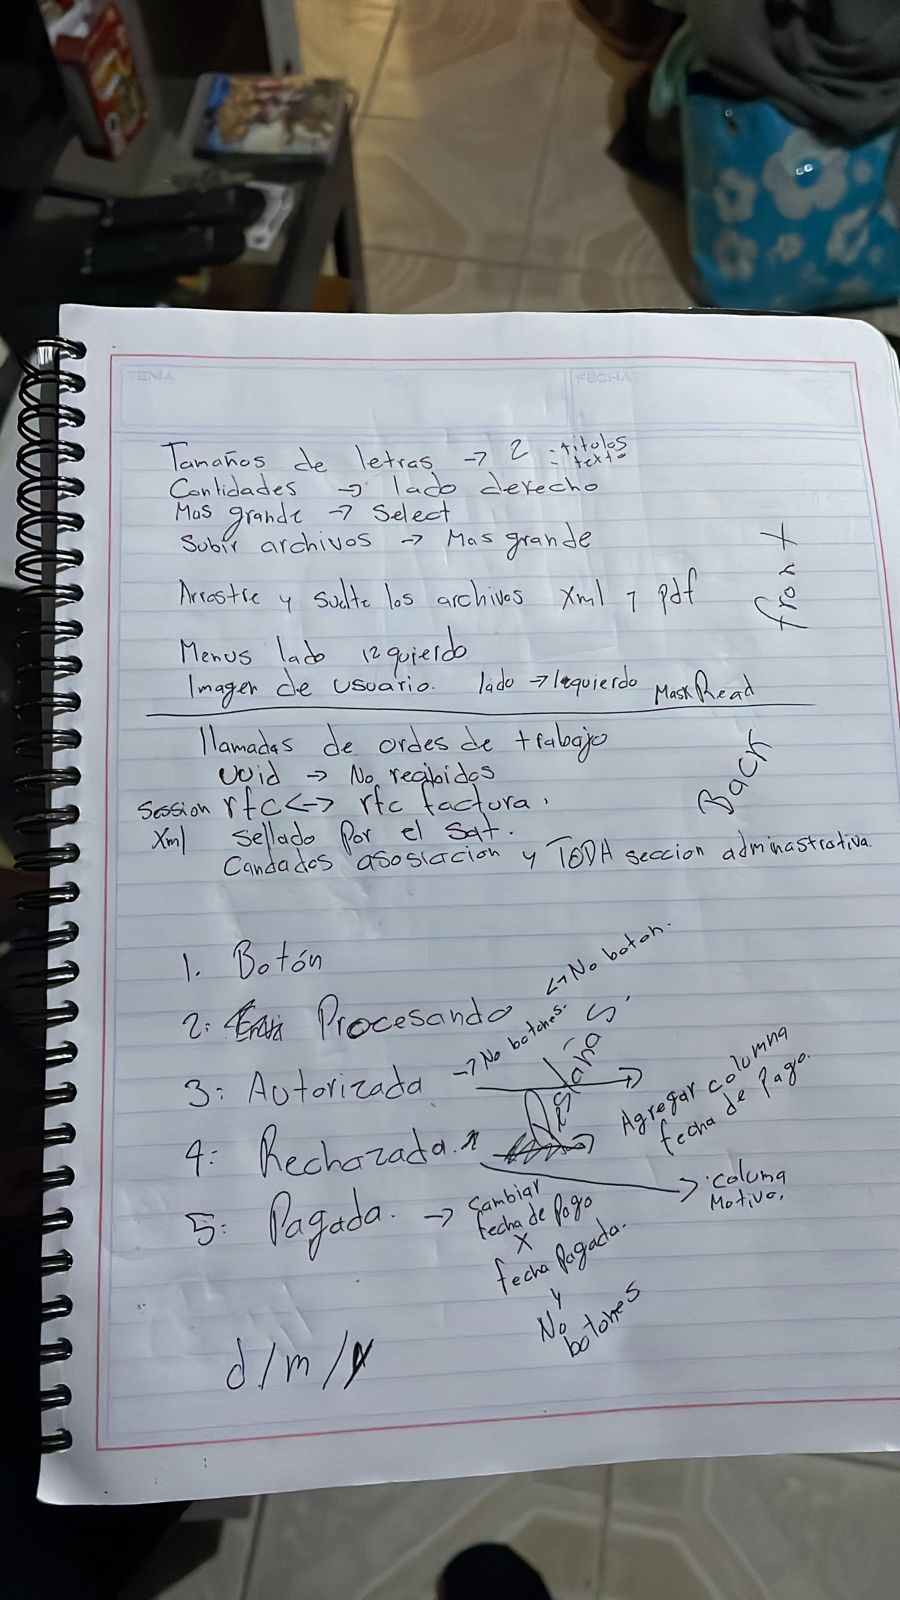 TEMA
FECHA
Tamaños de letras → 2 : titulos
: texto
Contidades → lado derecho
Mas grande → Select
Subir archivos → Mas grande
Arrastre y suelte los archivos Xml y pdf
front
Menus lado izquierdo
Imagen de usuario. lado → Izquierdo MaskRead
llamadas de ordes de trabajo
uuid → No regibidos
Back
Session rfc <-> rfc factura.
Xml sellado por el Sat.
Candados asosiacion y TODA seccion adminastrativa.
1. Botón
2: Procesando ↔ No boton.
3: Autorizada → No botones.
Pestañas.
Agregar columna
fecha de pago.
4: Rechazada.
→ coluna
Motivo.
5: Pagada. → Cambiar
fecha de pago
X
fecha Pagada.
y
No
botones
d/m/y